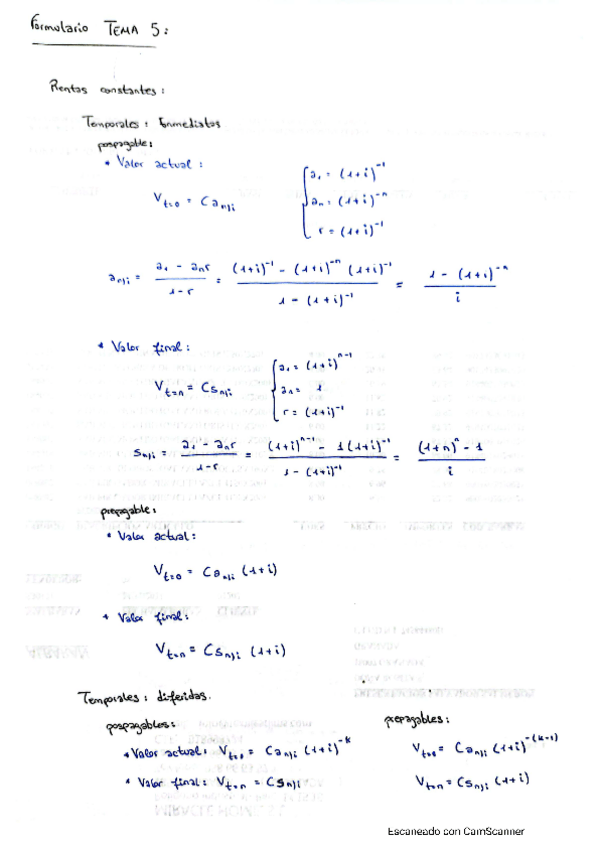 Formulario TEMA 5:
Rentas constantes:
Temporales: Inmediatas
pospagable:
* Valor actual:
V_{t=0} = C a_{n⌉i}
a_1 = (1+i)^{-1}
a_n = (1+i)^{-n}
r = (1+i)^{-1}
a_{n⌉i} = (a_1 - a_n r)/(1-r) = ((1+i)^{-1} - (1+i)^{-n} (1+i)^{-1})/(1 - (1+i)^{-1}) = (1 - (1+i)^{-n})/i
* Valor final:
V_{t=n} = C s_{n⌉i}
a_1 = (1+i)^{n-1}
a_n = 1
r = (1+i)^{-1}
s_{n⌉i} = (a_1 - a_n r)/(1-r) = ((1+i)^{n-1} - 1(1+i)^{-1})/(1 - (1+i)^{-1}) = ((1+n)^n - 1)/i
prepagable:
* Valor actual:
V_{t=0} = C a_{n⌉i} (1+i)
* Valor final:
V_{t=n} = C s_{n⌉i} (1+i)
Temporales: diferidas.
pospagables:
* Valor actual: V_{t=0} = C a_{n⌉i} (1+i)^{-k}
* Valor final: V_{t=n} = C s_{n⌉i}
prepagables:
V_{t=0} = C a_{n⌉i} (1+i)^{-(k-1)}
V_{t=n} = C s_{n⌉i} (1+i)
Escaneado con CamScanner